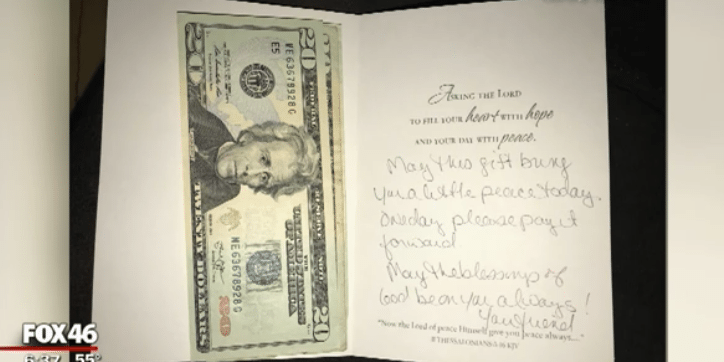 20
20
ME63678928G
E5
THE UNITED STATES OF AMERICA
ME63678928G
TWENTY DOLLARS
20
ASKING THE LORD
TO FILL YOUR heart WITH hope
AND YOUR DAY WITH peace.
May this gift bring
you a little peace today.
One day please pay it
forward
May the blessings of
God be on you always!
Your friend
"Now the Lord of peace Himself give you peace always...
II THESSALONIANS 3:16 KJV
FOX46
6:37 55°